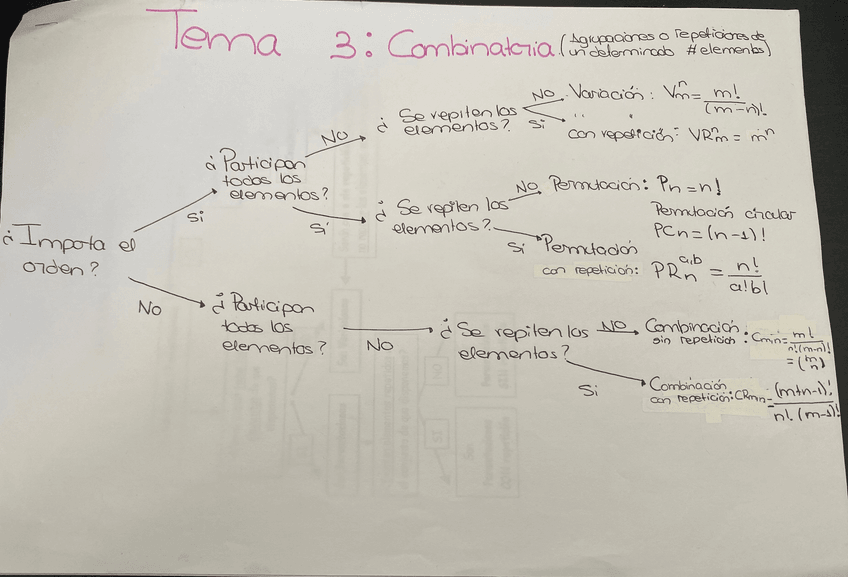 Tema 3: Combinatoria (Agrupaciones o repeticiones de
un determinado # elementos)
¿Importa el
orden?
SI
¿Participan
todos los
elementos?
NO
¿Se repiten los
elementos?
NO
Variación: Vₘⁿ = m!/(m-n)!
Si
" "
con repetición: VRₘⁿ = mⁿ
Sí
¿Se repiten los
elementos?
NO
Permutación: Pn = n!
Permutación circular
PCn = (n-1)!
Si
Permutación
con repetición: PRₙᵃ,ᵇ = n!/a!b!
No
¿Participan
todos los
elementos?
NO
¿Se repiten los
elementos?
NO
Combinación
sin repetición: Cm,n = m!/n!(m-n)!
= (m n)
Si
Combinación
con repetición: CRm,n = (m+n-1)!/n!.(m-1)!